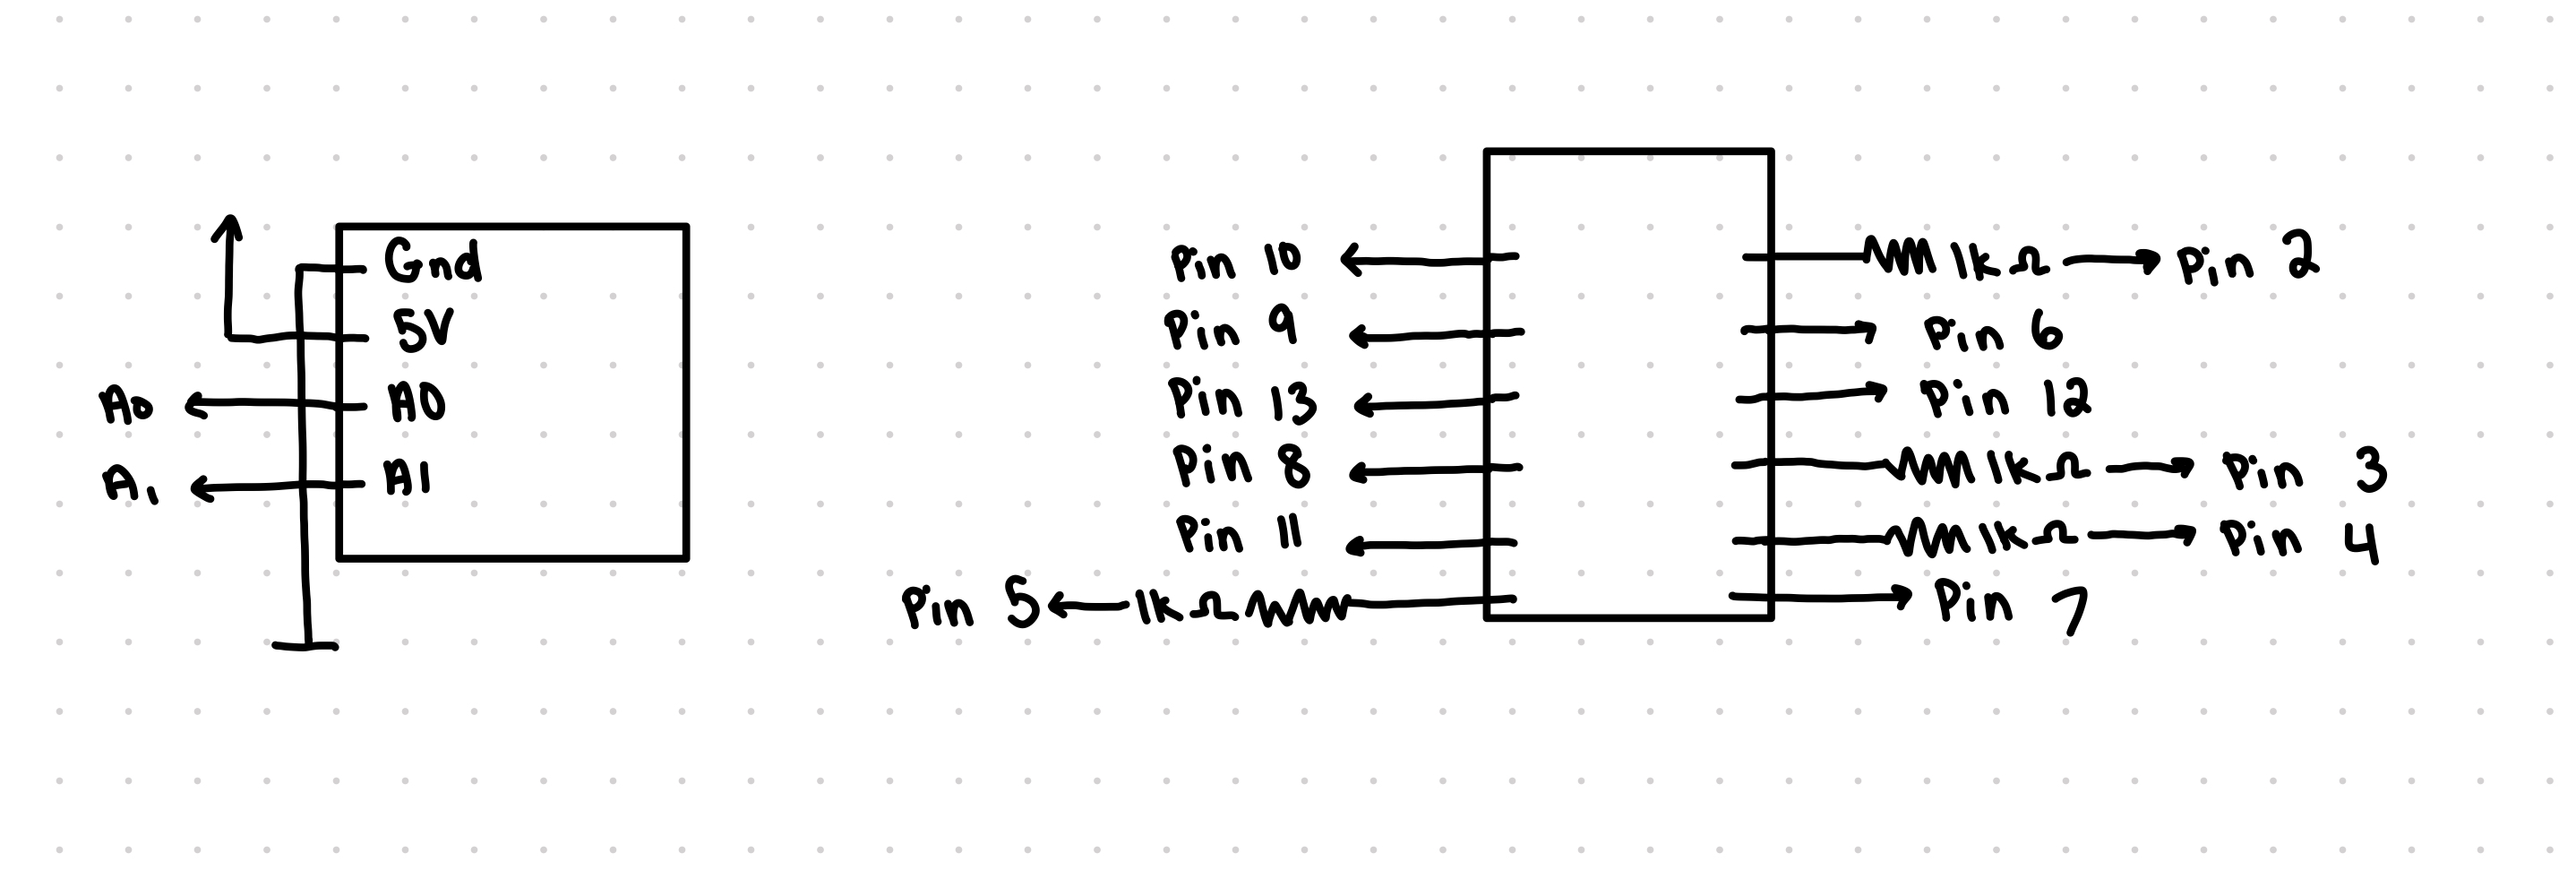 Gnd
5V
A0 A0
A1 A1
Pin 10
Pin 9
Pin 13
Pin 8
Pin 11
Pin 5 1kΩ
1kΩ Pin 2
Pin 6
Pin 12
1kΩ Pin 3
1kΩ Pin 4
Pin 7